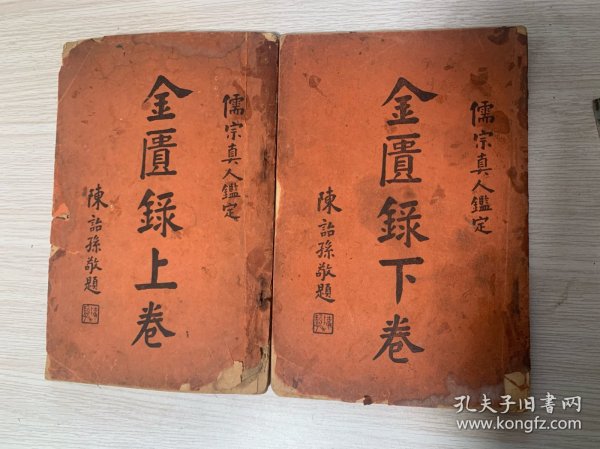 儒宗真人鑑定
金匱録上卷
陳詒孫敬題
儒宗真人鑑定
金匱録下卷
陳詒孫敬題
孔夫子旧书网
www.kongfz.com